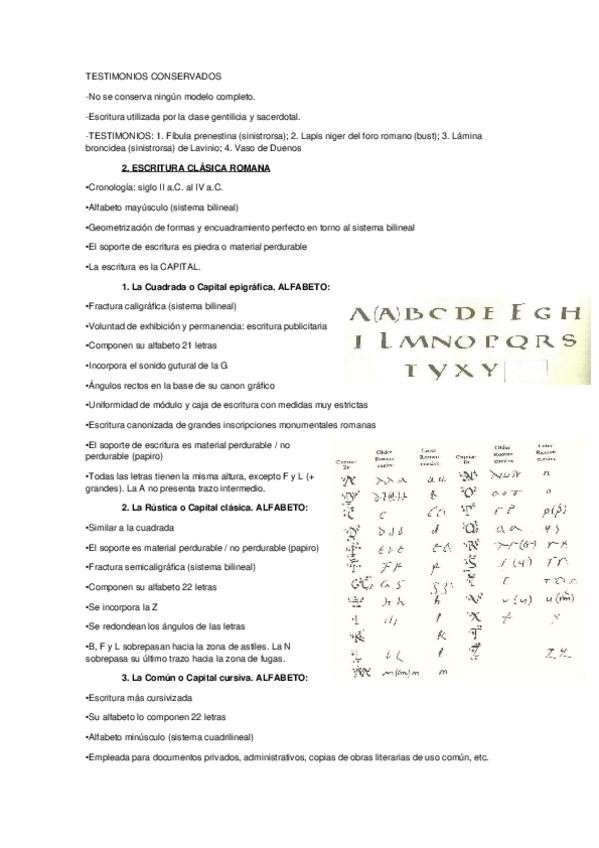 TESTIMONIOS CONSERVADOS
-No se conserva ningún modelo completo.
-Escritura utilizada por la clase gentilicia y sacerdotal.
-TESTIMONIOS: 1. Fíbula prenestina (sinistrorsa); 2. Lapis niger del foro romano (bust); 3. Lámina
broncidea (sinistrorsa) de Lavinio; 4. Vaso de Duenos
2. ESCRITURA CLÁSICA ROMANA
•Cronología: siglo II a.C. al IV a.C.
•Alfabeto mayúsculo (sistema bilineal)
•Geometrización de formas y encuadramiento perfecto en torno al sistema bilineal
•El soporte de escritura es piedra o material perdurable
•La escritura es la CAPITAL.
1. La Cuadrada o Capital epigráfica. ALFABETO:
•Fractura caligráfica (sistema bilineal)
•Voluntad de exhibición y permanencia: escritura publicitaria
•Componen su alfabeto 21 letras
•Incorpora el sonido gutural de la G
•Ángulos rectos en la base de su canon gráfico
•Uniformidad de módulo y caja de escritura con medidas muy estrictas
•Escritura canonizada de grandes inscripciones monumentales romanas
•El soporte de escritura es material perdurable / no
perdurable (papiro)
•Todas las letras tienen la misma altura, excepto F y L (+
grandes). La A no presenta trazo intermedio.
2. La Rústica o Capital clásica. ALFABETO:
•Similar a la cuadrada
•El soporte es material perdurable / no perdurable (papiro)
•Fractura semicaligráfica (sistema bilineal)
•Componen su alfabeto 22 letras
•Se incorpora la Z
•Se redondean los ángulos de las letras
•B, F y L sobrepasan hacia la zona de astiles. La N
sobrepasa su último trazo hacia la zona de fugas.
3. La Común o Capital cursiva. ALFABETO:
•Escritura más cursivizada
•Su alfabeto lo componen 22 letras
•Alfabeto minúsculo (sistema cuadrilineal)
•Empleada para documentos privados, administrativos, copias de obras literarias de uso común, etc.
Λ(A)BCDEFGH
ILMNOPQRS
TVXY